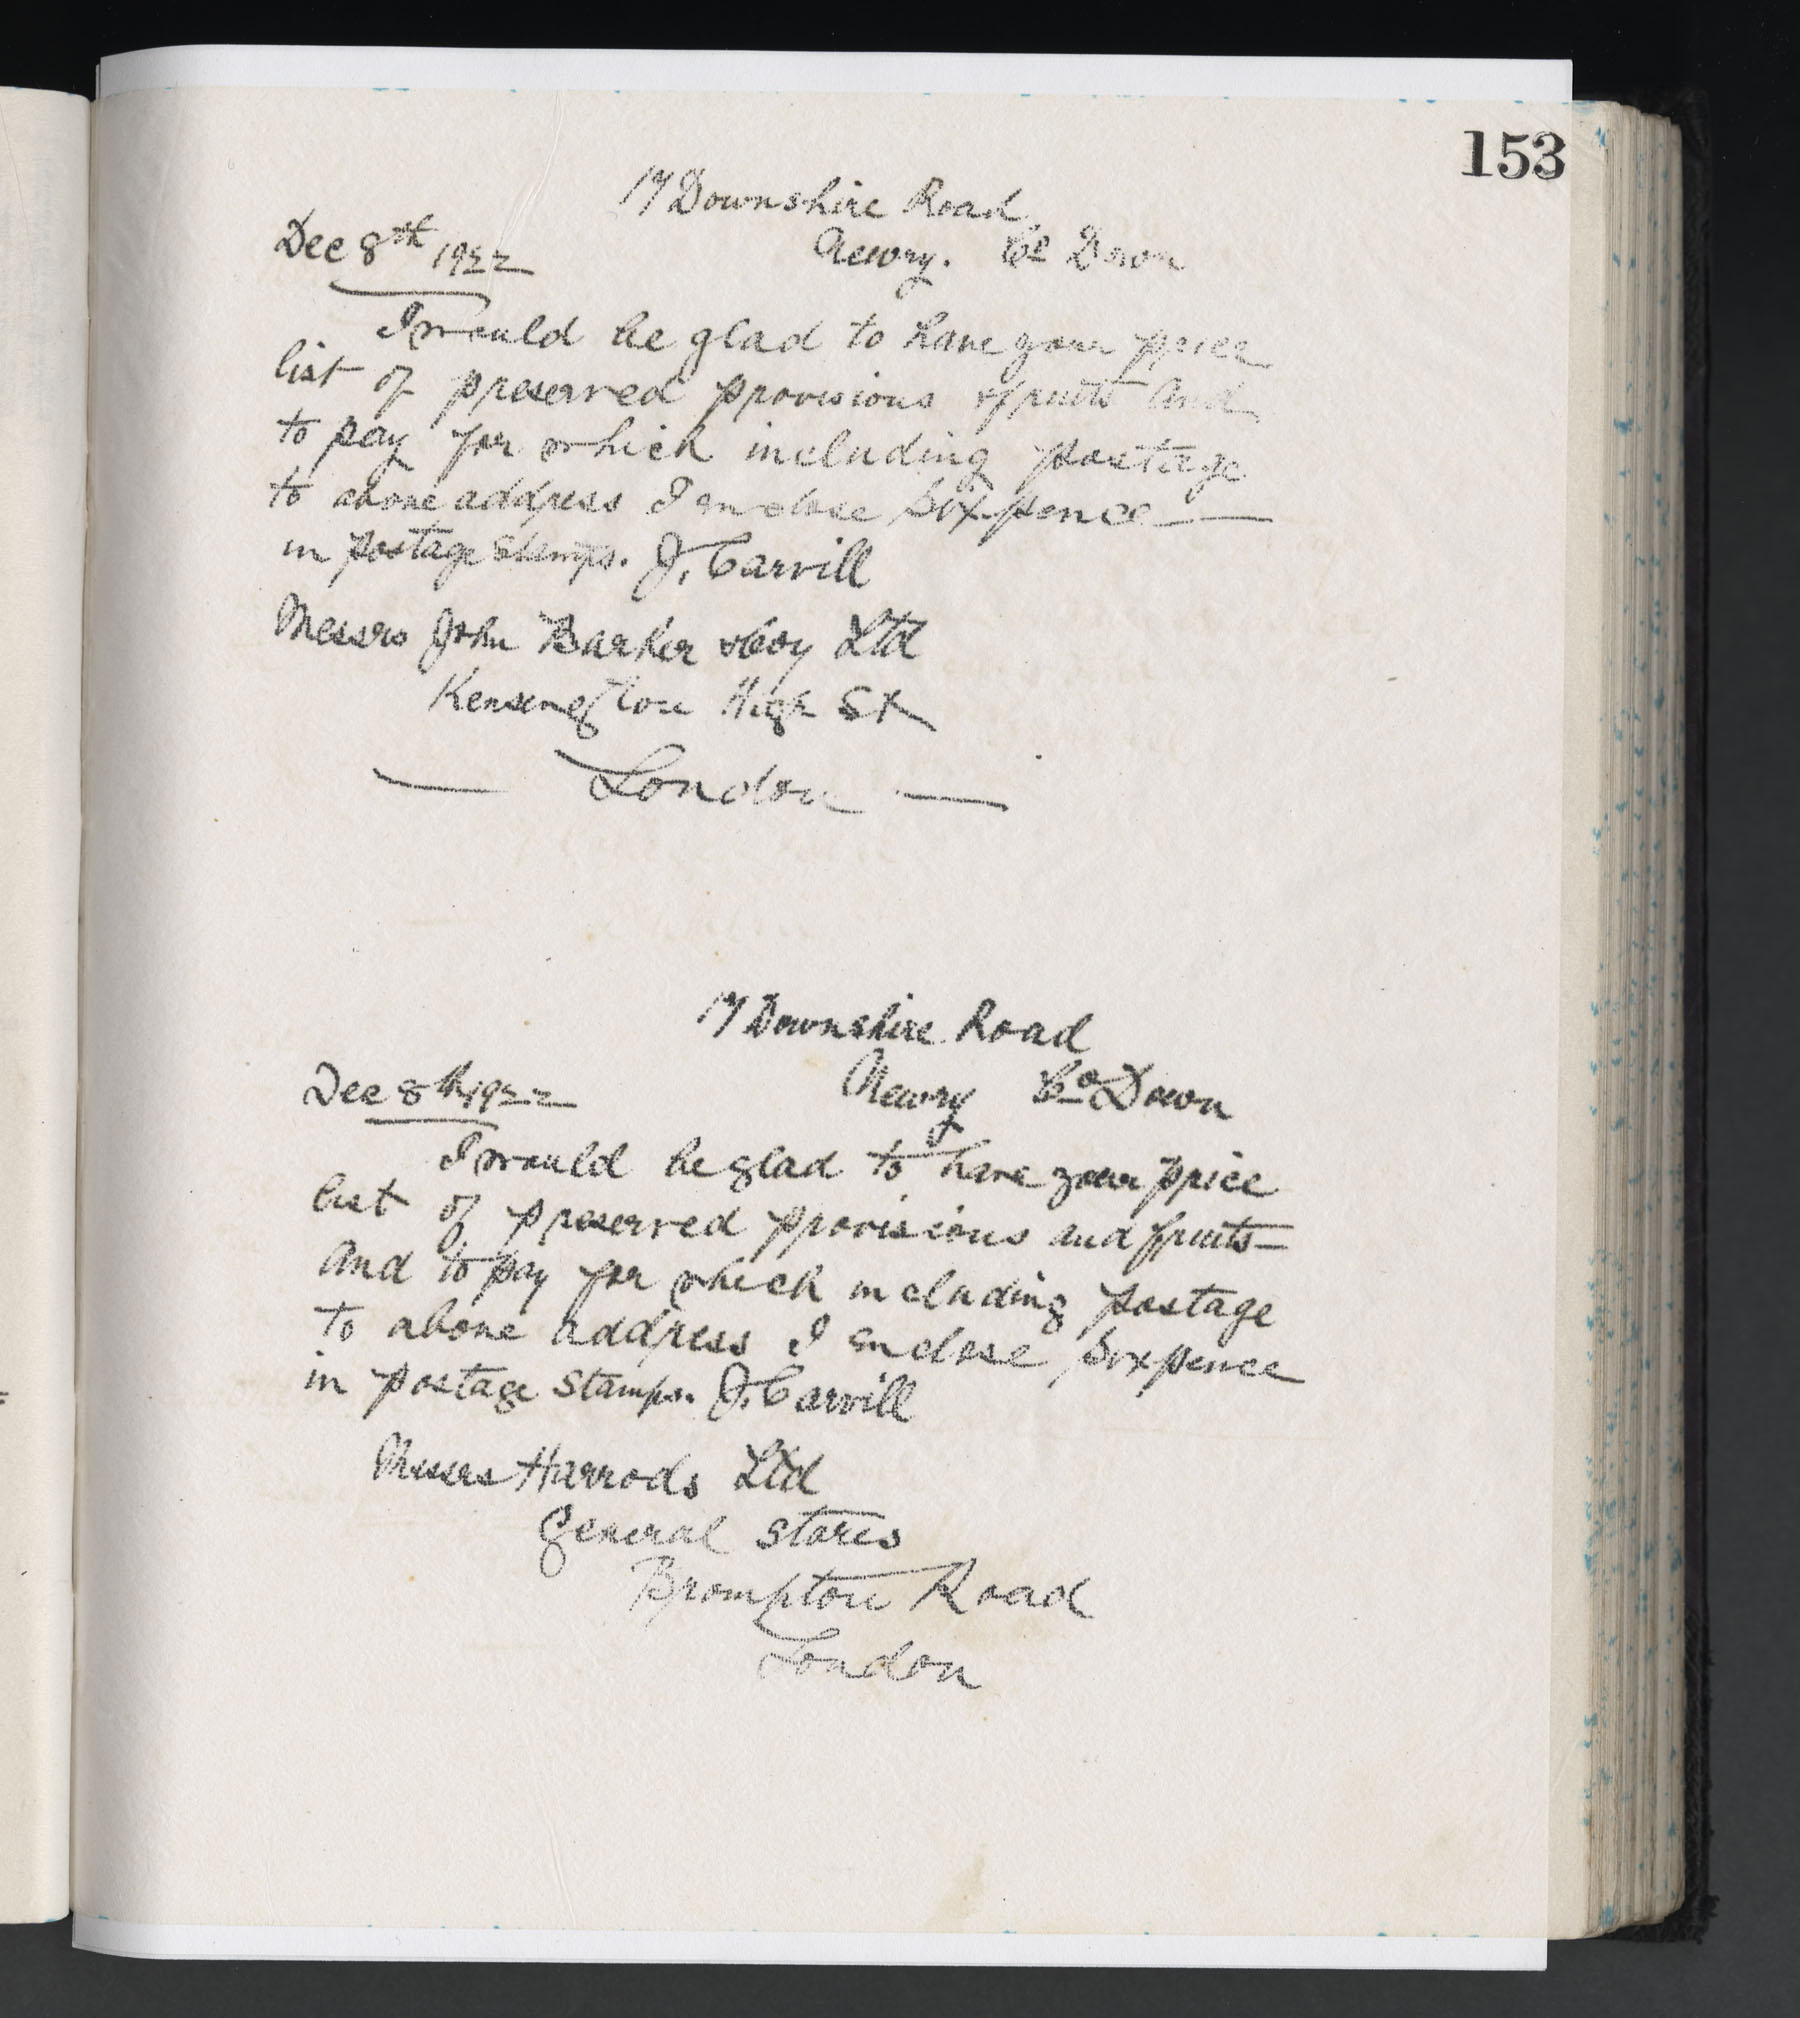 153
17 Downshire Road
Dec 8th 1922 Newry. Co Down
I would be glad to have your price
list of preserved provisions & fruits and
to pay for which including postage
to above address I enclose Sixpence
in postage stamps. J. Carvill
Messrs John Barker & Coy Ltd
Kensington High St
London
17 Downshire Road
Dec 8th 1922 Newry Co Down
I would be glad to have your price
list of preserved provisions and fruits
and to pay for which including postage
to above address I enclose Sixpence
in postage stamps. J. Carvill
Messrs Harrods Ltd
General Stores
Brompton Road
London